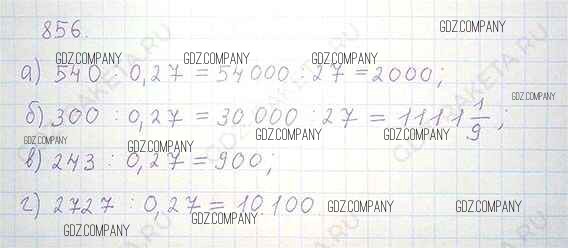 856.
GDZ.COMPANY
GDZ.COMPANY GDZ.COMPANY GDZ.COMPANY
а) 540 : 0,27 = 54000 : 27 = 2000;
GDZ.COMPANY
б) 300 : 0,27 = 30.000 : 27 = 1111 1/9;
GDZ.COMPANY GDZ.COMPANY GDZ.COMPANY GDZ.COMPANY
в) 243 : 0,27 = 900;
г) 2727 : 0,27 = 10.100
GDZ.COMPANY GDZ.COMPANY GDZ.COMPANY GDZ.COMPANY